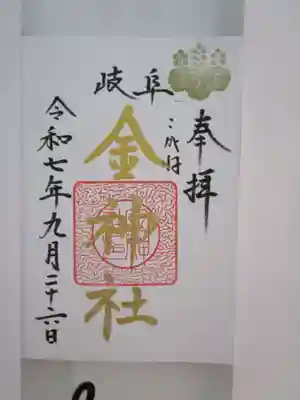 奉拝
岐阜
こがね
金神社
令和七年九月二十六日